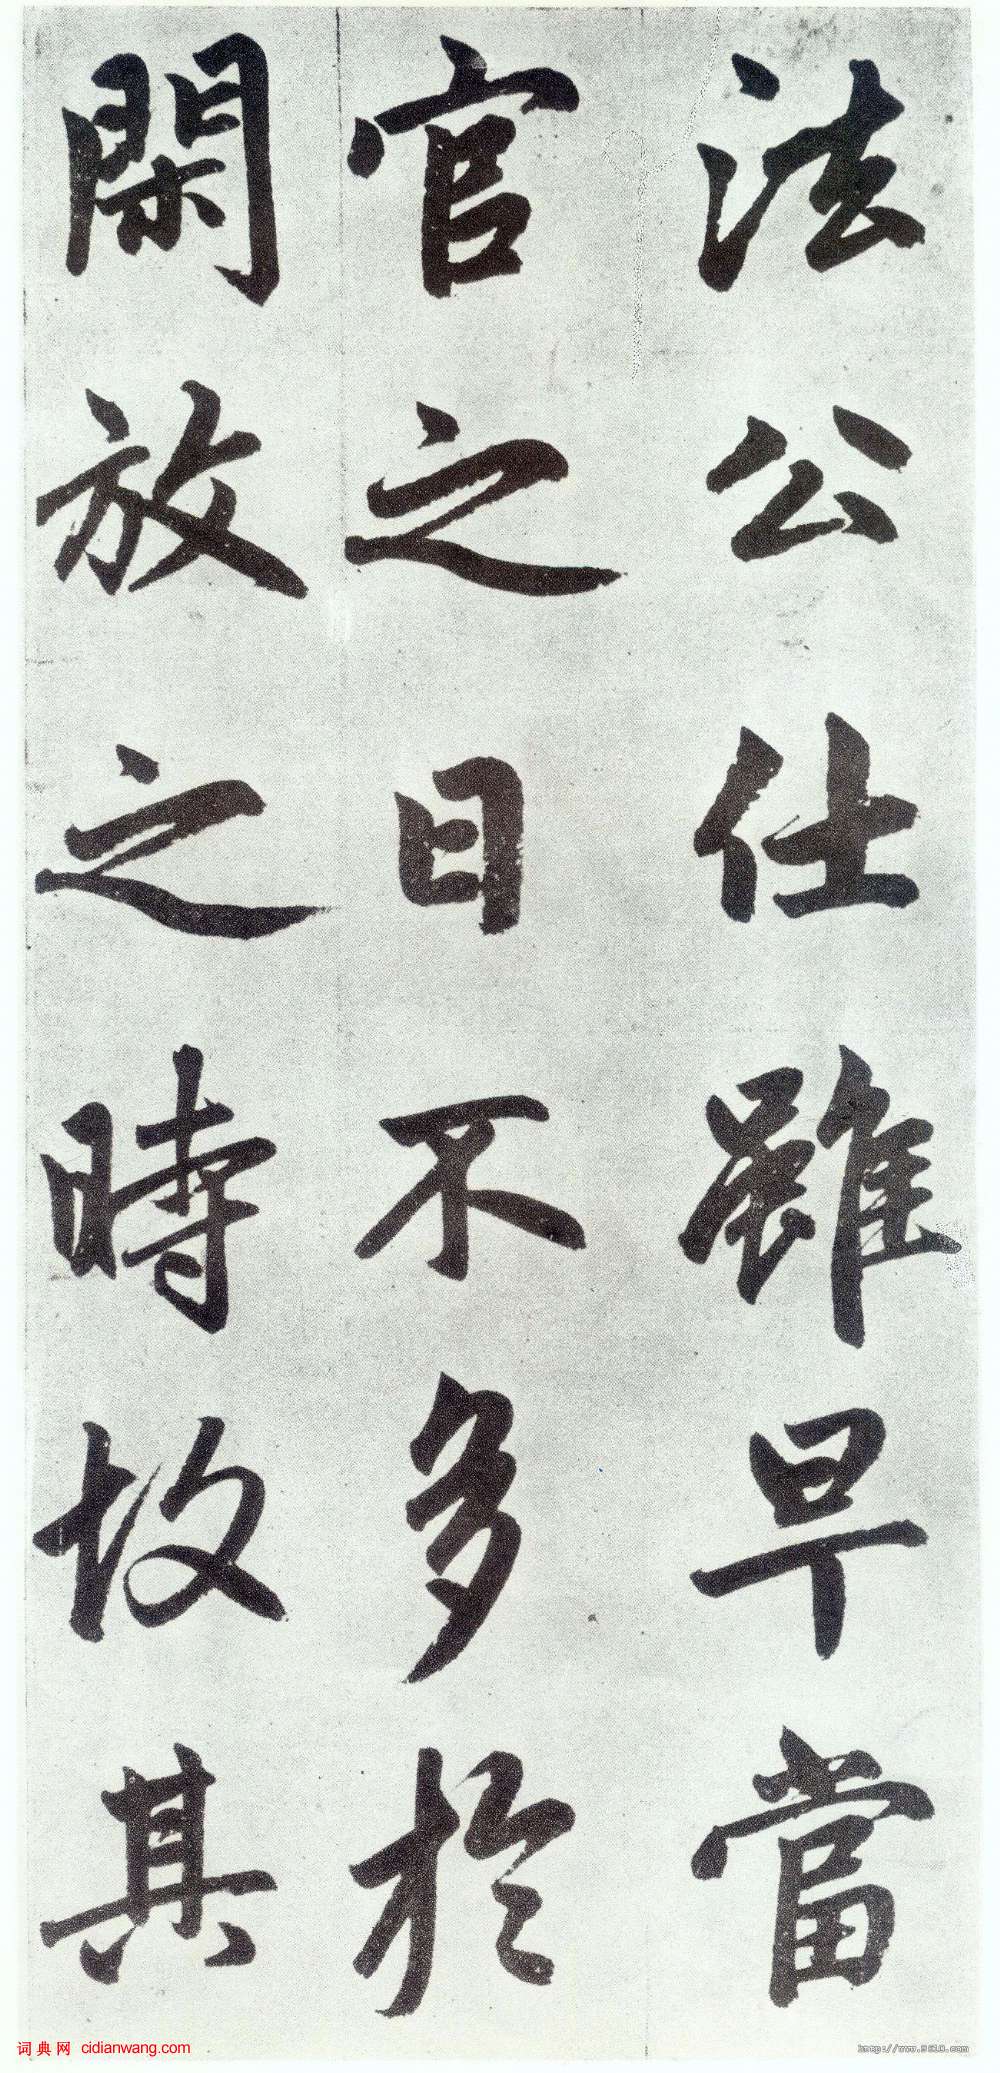 法公仕雖早當
官之日不多於
閑放之時故其
词典网 cidianwang.com
http://www.9610.com